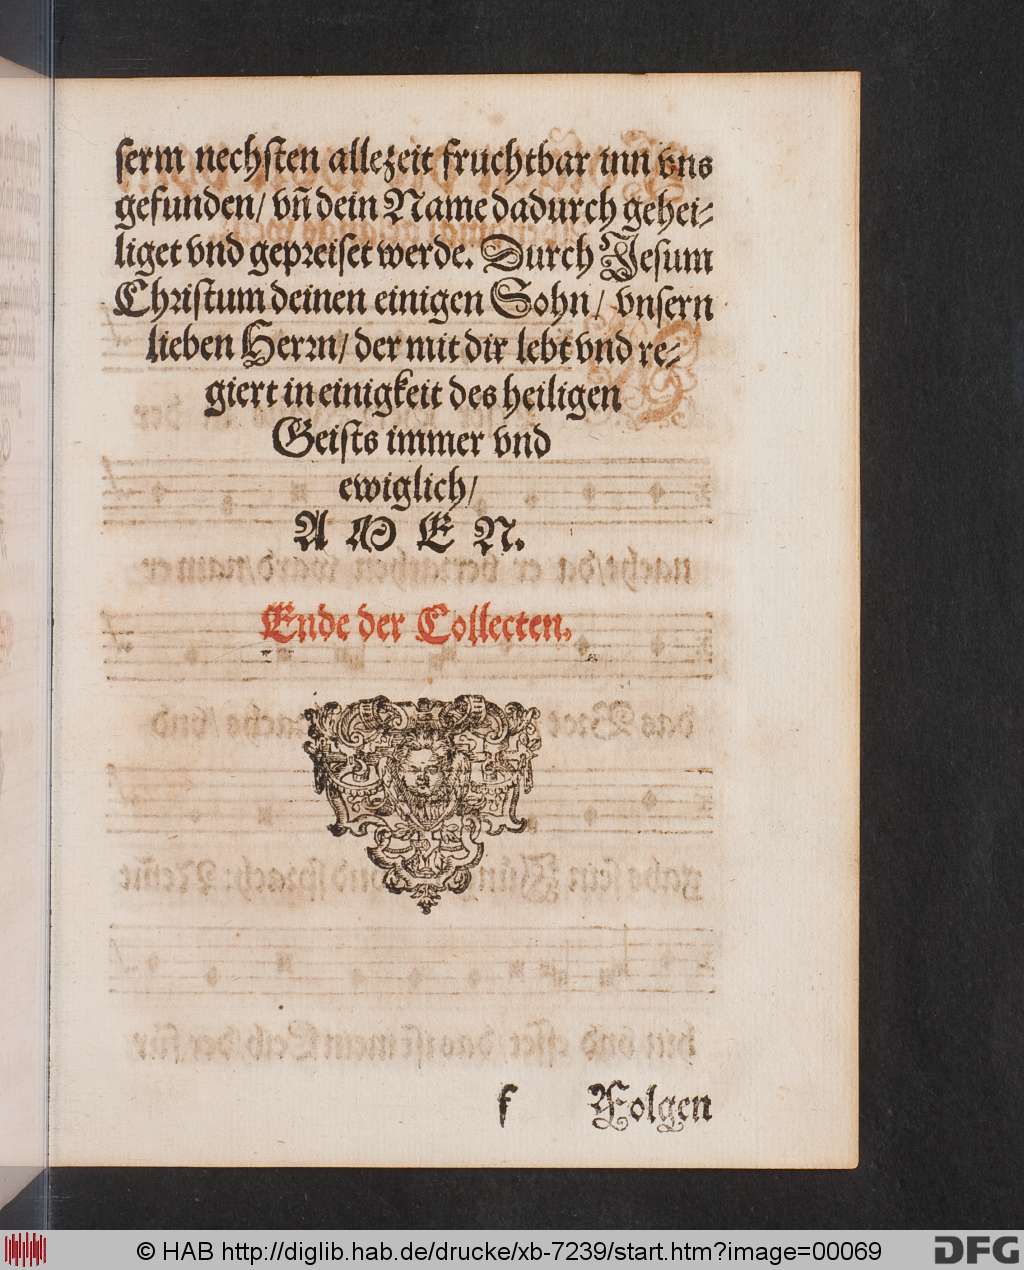 serm nechsten allezeit fruchtbar inn vns
gefunden/ vñ dein Name dadurch gehei⸗
liget vnd gepreiset werde. Durch Jesum
Christum deinen einigen Sohn/ vnsern
lieben Herrn/ der mit dir lebt vnd re⸗
giert in einigkeit des heiligen
Geists immer vnd
ewiglich/
A M E N.
Ende der Collecten.
f Folgen
© HAB http://diglib.hab.de/drucke/xb-7239/start.htm?image=00069
DFG